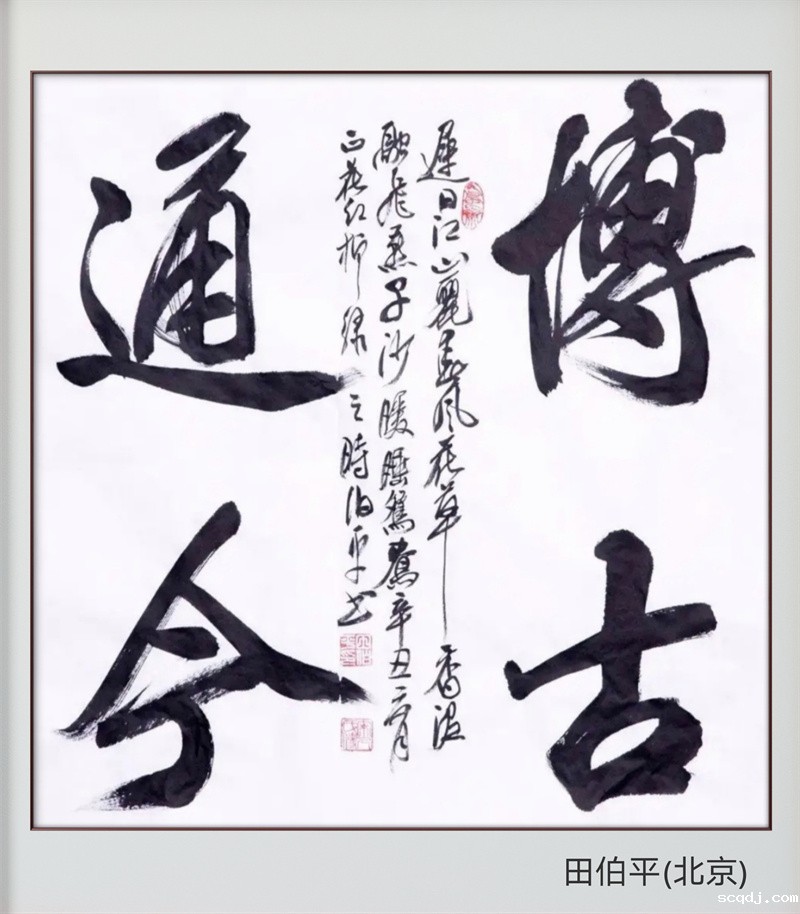 博古
通今
遲日江山麗春风花草香泥
融飛燕子沙暖睡鴛鴦辛丑二月
正花红柳绿之時伯平书
田伯平(北京)
scqdj.com